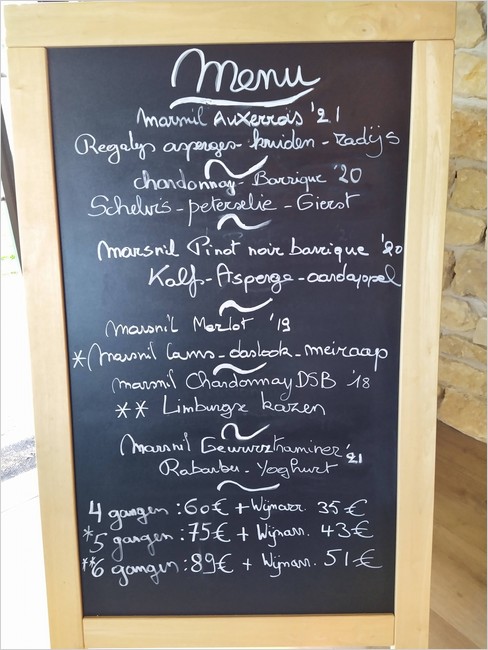 Menu
Marsnil Auxerrois '21
Regalys asperges kruiden - radijs
Chardonnay - Barrique '20
Schelvis - peterselie - Gierst
Marsnil Pinot noir barrique '20
Kalf - Asperge - aardappel
Marsnil Merlot '19
* Marsnil Lams - daslook - meiraap
Marsnil Chardonnay DSB '18
** Limburgse kazen
Marsnil Gewurztraminer '21
Rabarber - Yoghurt
4 gangen : 60€ + Wijnarr. 35€
*5 gangen : 75€ + Wijnarr. 43€
**6 gangen : 89€ + Wijnarr. 51€